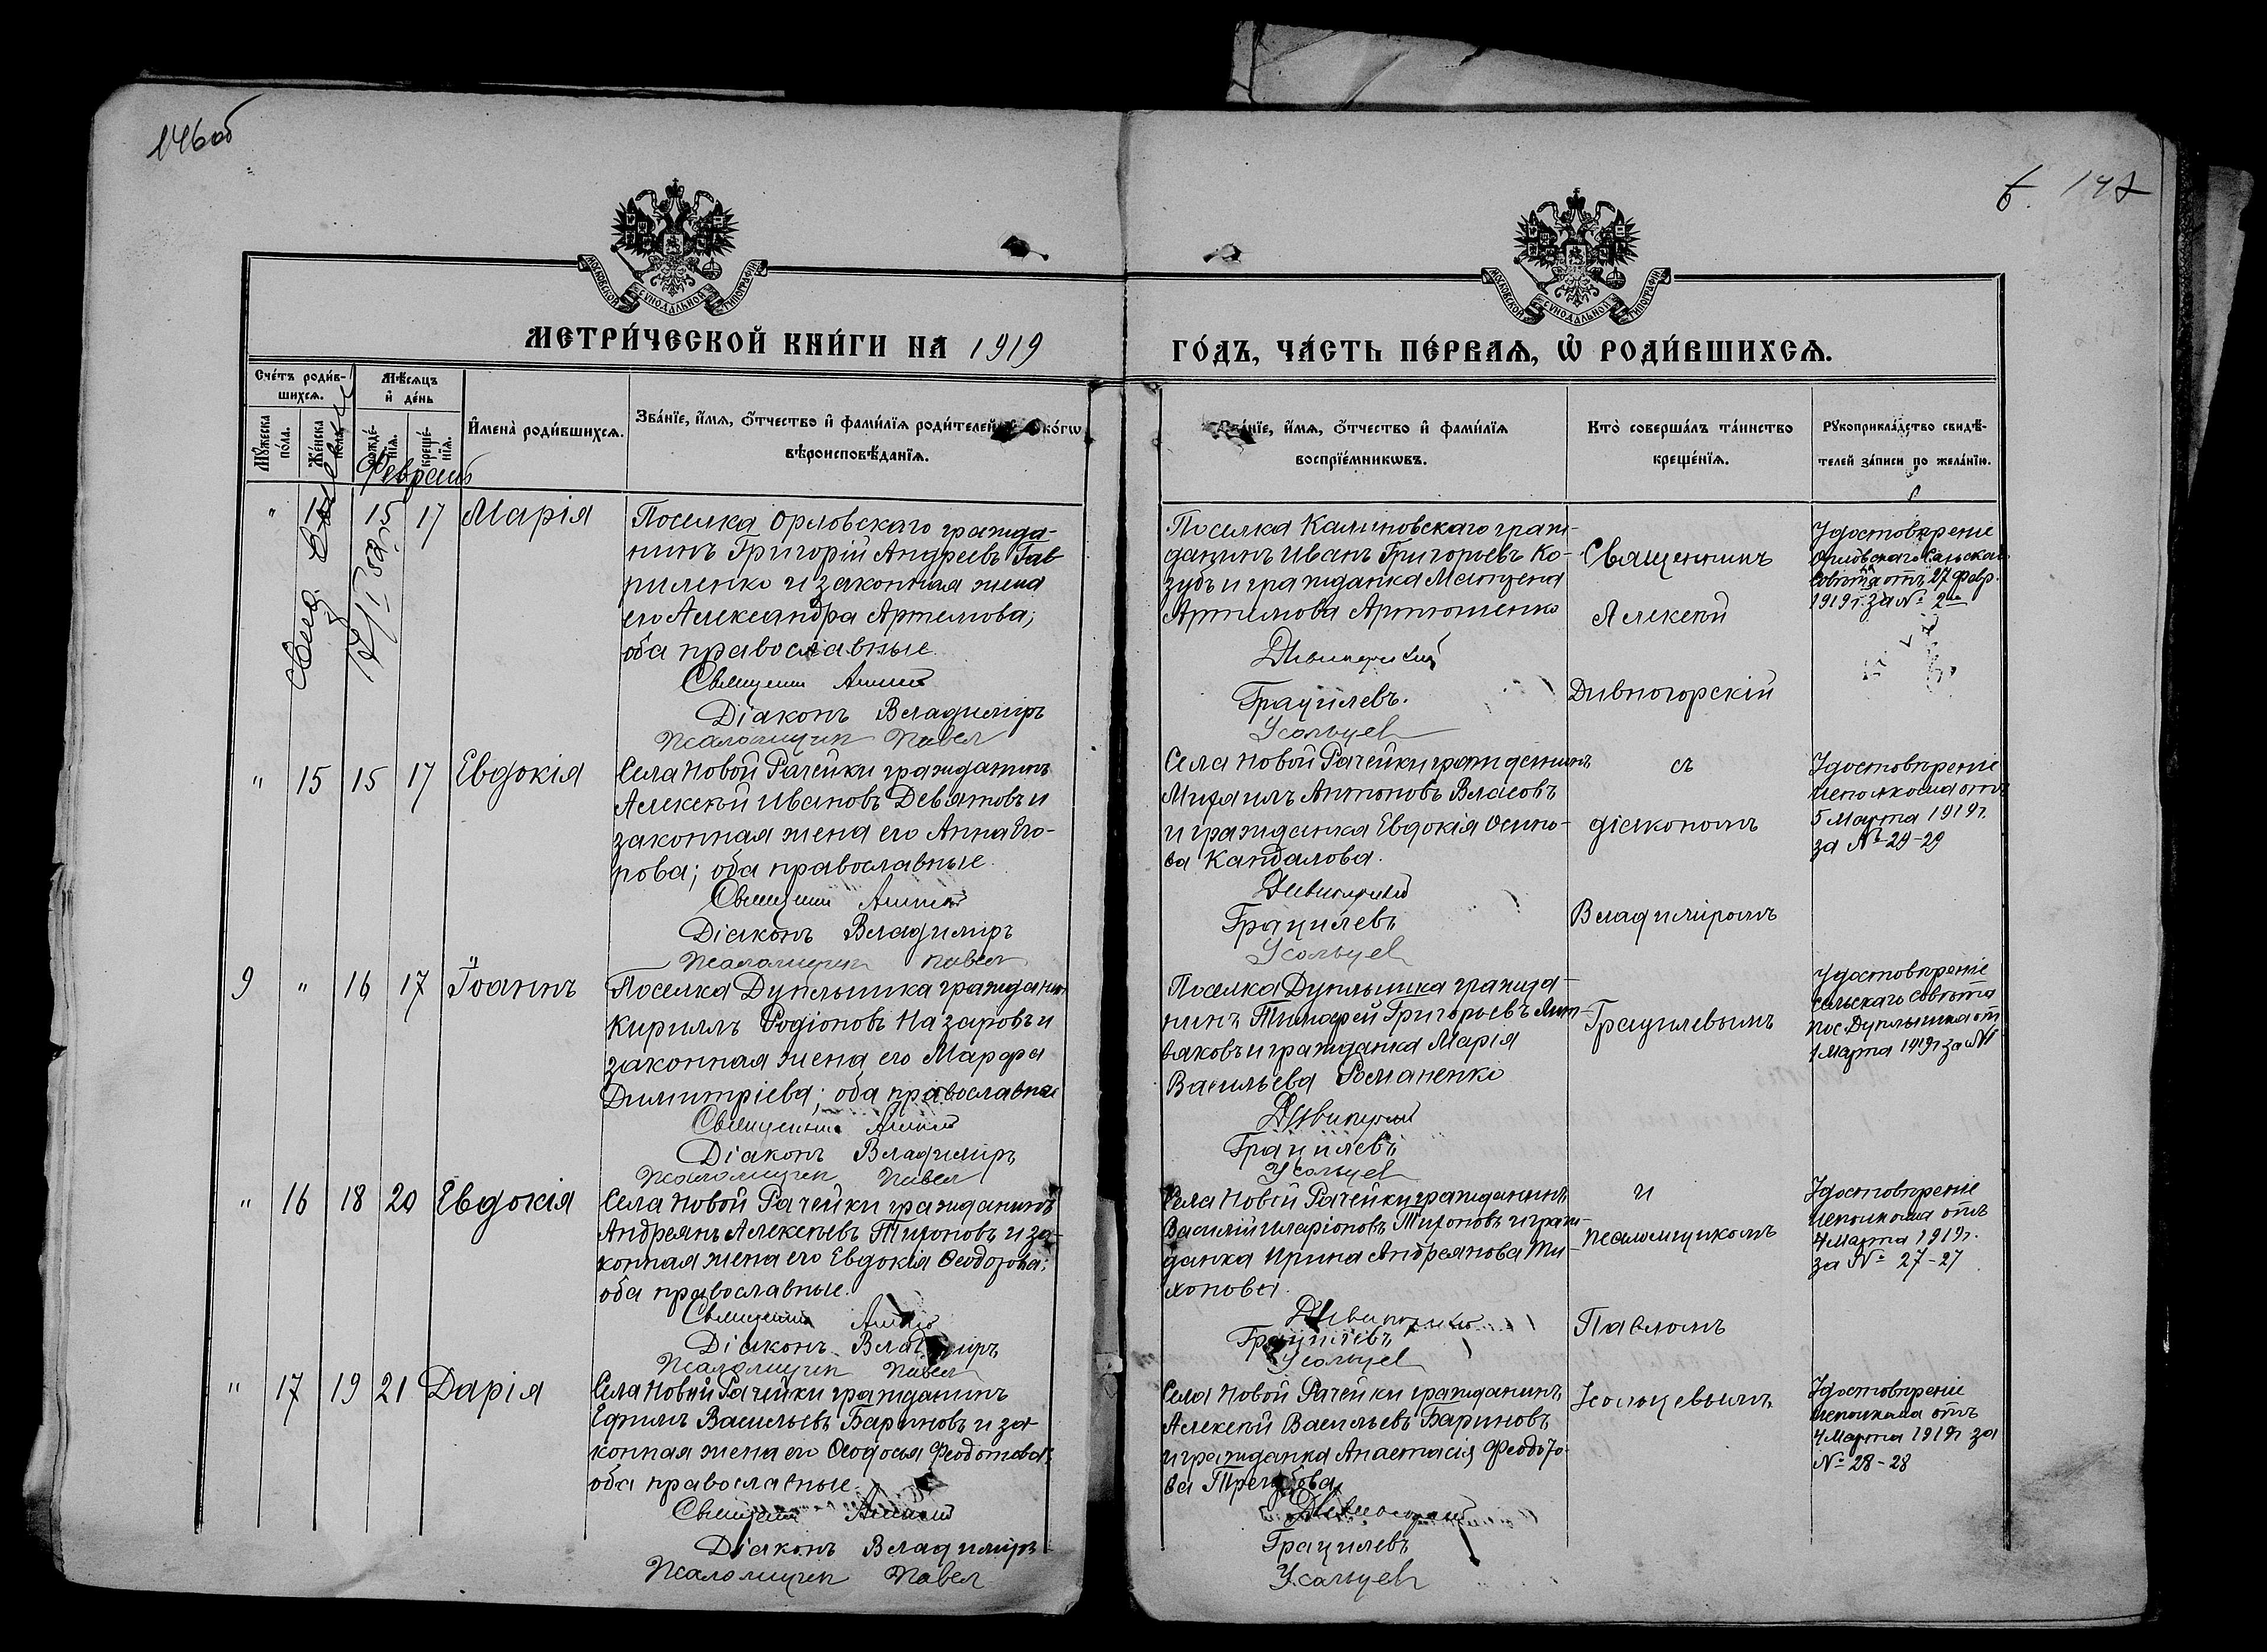 146об
6. 147
МОСКОВСКОЙ СѴНОДАЛЬНОЙ ТИПОГРАФІИ
МОСКОВСКОЙ СѴНОДАЛЬНОЙ ТИПОГРАФІИ
МЕТРИ́ЧЕСКОЙ КНИ́ГИ НА 1919
ГО́ДЪ, ЧА́СТЬ ПЕ́РВАѦ, Ѡ҆ РОДИ́ВШИХСѦ.
Сче́тъ роди́в-
шихсѧ.
Мѣ́сѧцъ
и҆ де́нь
Мꙋ́жеска
по́ла.
Же́нска
по́ла.
рожде́-
нїѧ.
креще́-
нїѧ.
И҆мена̀ роди́вшихсѧ.
Зва́нїе, и҆́мѧ, ѻ҆́тчество и҆ фами́лїѧ роди́телей, и҆ како́гѡ
вѣроисповѣ́данїѧ.
Зва́нїе, и҆́мѧ, ѻ҆́тчество и҆ фами́лїѧ
воспрїе́мникѡвъ.
Кто̀ соверша́лъ та́инство
креще́нїѧ.
Рꙋкоприкла́дство свидѣ́-
телей за́писи по жела́нїю.
Февраль
" 15 17 Марія
Поселка Орловскаго гражда-
нинъ Григорій Андреевъ Гав
риленко и законная жена
его Александра Артемова;
оба православные.
Священн Алексій
Діаконъ Владиміръ
Псаломщик Павел
Поселка Калиновскаго граж-
данинъ Иванъ Григорьевъ Ко-
зубъ и гражданка
Артемова Артюшенко
Дивногорский
Грацилевъ.
Усольцев
Священникъ
Алексѣй
Дивногорскій
Удостовѣреніе
Орловскаго Сельскаго
Совѣта отъ 27 февр.
1919 г. за № 2
" 15 15 17 Евдокія
Села Новой Рачейки гражданинъ
Алексѣй Ивановъ Девятовъ и
законная жена его Анна Его-
рова; оба православные.
Священн Алексій
Діаконъ Владиміръ
Псаломщик Павел
Села Новой Рачейки гражданинъ
Михаилъ Антоновъ Власовъ
и гражданка Евдокія Осипо-
ва Кандалова.
Дивногорский
Грацилевъ
Усольцев
съ
діакономъ
Владиміромъ
Удостовѣреніе
исполкома отъ
5 Марта 1919 г.
за № 29-29
9 " 16 17 Іоаннъ
Поселка Дуплышка гражданин
Кириллъ Родіоновъ Назаровъ и
законная жена его Марфа
Димитріева; оба православные
Священник Алексій
Діаконъ Владиміръ
Псаломщик Павел
Поселка Дуплышка гражда-
нинъ Тимофей Григорьевъ
вяковъ и гражданка Марія
Васильева Романенко
Дивногорский
Грацилевъ
Усольцев
Грацилевымъ
Удостовѣреніе
сельскаго Совѣта
пос. Дуплышка от
1 Марта 1919 г за №1
" 16 18 20 Евдокія
Села Новой Рачейки гражданинъ
Андреянъ Алексѣевъ Тихоновъ и за-
конная жена его Евдокія Ѳеодорова;
оба православные.
Священник Алексій
Діаконъ Владиміръ
Псаломщик Павел
Села Новой Рачейки гражданинъ
Василій Иларіоновъ Тихоновъ и граж-
данка Ирина Андреянова Ти-
хонова.
Дивногорский
Грацилевъ
Усольцев
и
псаломщикомъ
Павломъ
Удостовѣреніе
исполкома отъ
4 Марта 1919 г.
за № 27-27
" 17 19 21 Дарія
Села Новой Рачейки гражданинъ
Ефимъ Васильевъ Бариновъ и за-
конная жена его Ѳеодосья Феодотова;
оба православные.
Священн Алексій
Діаконъ Владиміръ
Псаломщик Павел
Села Новой Рачейки гражданинъ
Алексѣй Васильевъ Бариновъ
и гражданка Анастасія Феодо
ва
Дивногорский
Грацилевъ
Усольцев
Усольцевымъ
Удостовѣреніе
исполкома отъ
4 Марта 1919 г за
№ 28-28